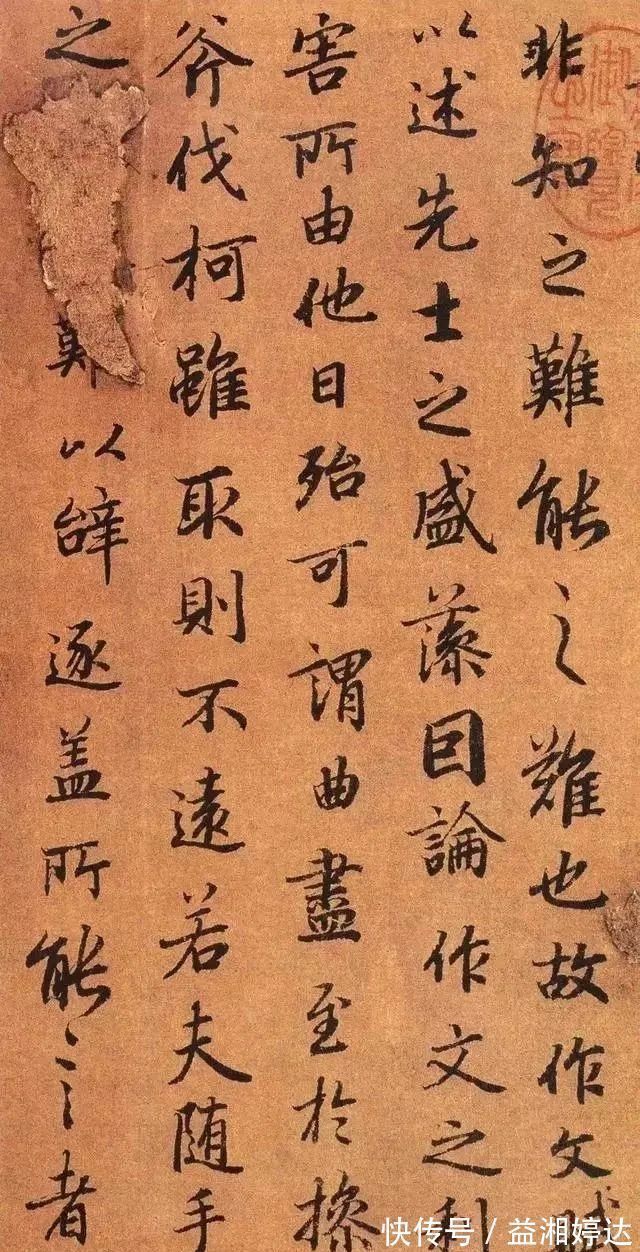 非知之難能之難也故作文賦
以述先士之盛藻囙論作文之利
害所由他日殆可謂曲盡至於操
斧伐柯雖取則不遠若夫随手
之以辭逐盖所能之者
快传号／益湘婷达